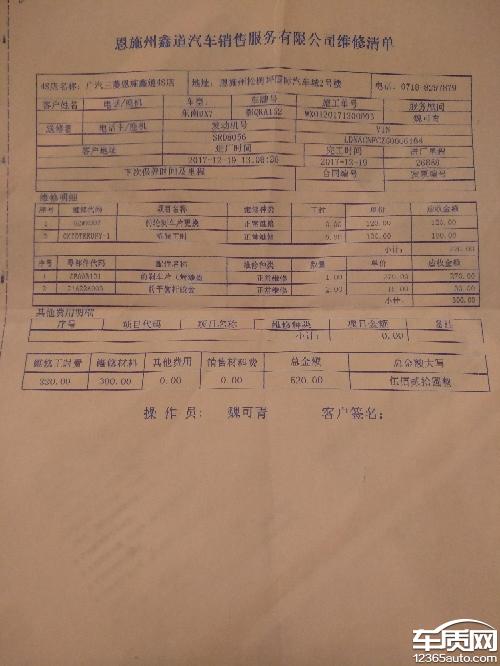 恩施州鑫道汽车销售服务有限公司维修清单
4S店名称：广汽三菱恩施鑫道4S店 地址：恩施州松树坪国际汽车城2号楼 电话：0718-8297879
客户姓名 电话/手机 车型 车牌号 施工单号 服务顾问
东南DX7 魏可青
送修者 电话卡/手机 发动机号 VIN
客户地址 进厂时间 完工时间 进厂里程
2017-12-19 13:08:38 2017-12-19 26888
下次保养时间及里程 合同编号 发票编号
维修明细
序号 维修代码 项目名称 维修种类 工时 单价 应收金额
1 前轮刹车片更换 正常维修 120.00 120.00
2 正常维修 100.00 100.00
小计： 220.00
序号 零部件代码 配件名称 维修种类 数量 单价 应收金额
1 正常维修 1.00 270.00 270.00
2 正常维修 2.00 30.00
小计： 300.00
其他费用明细
序号 项目代码 项目名称 维修种类 项目金额 备注
小计： 0.00
维修工时费 维修材料 其他费用 销售材料费 总金额 总金额大写
220.00 300.00 0.00 0.00 520.00 伍佰贰拾圆整
操作员： 魏可青 客户签名：
车质网
12365auto.com